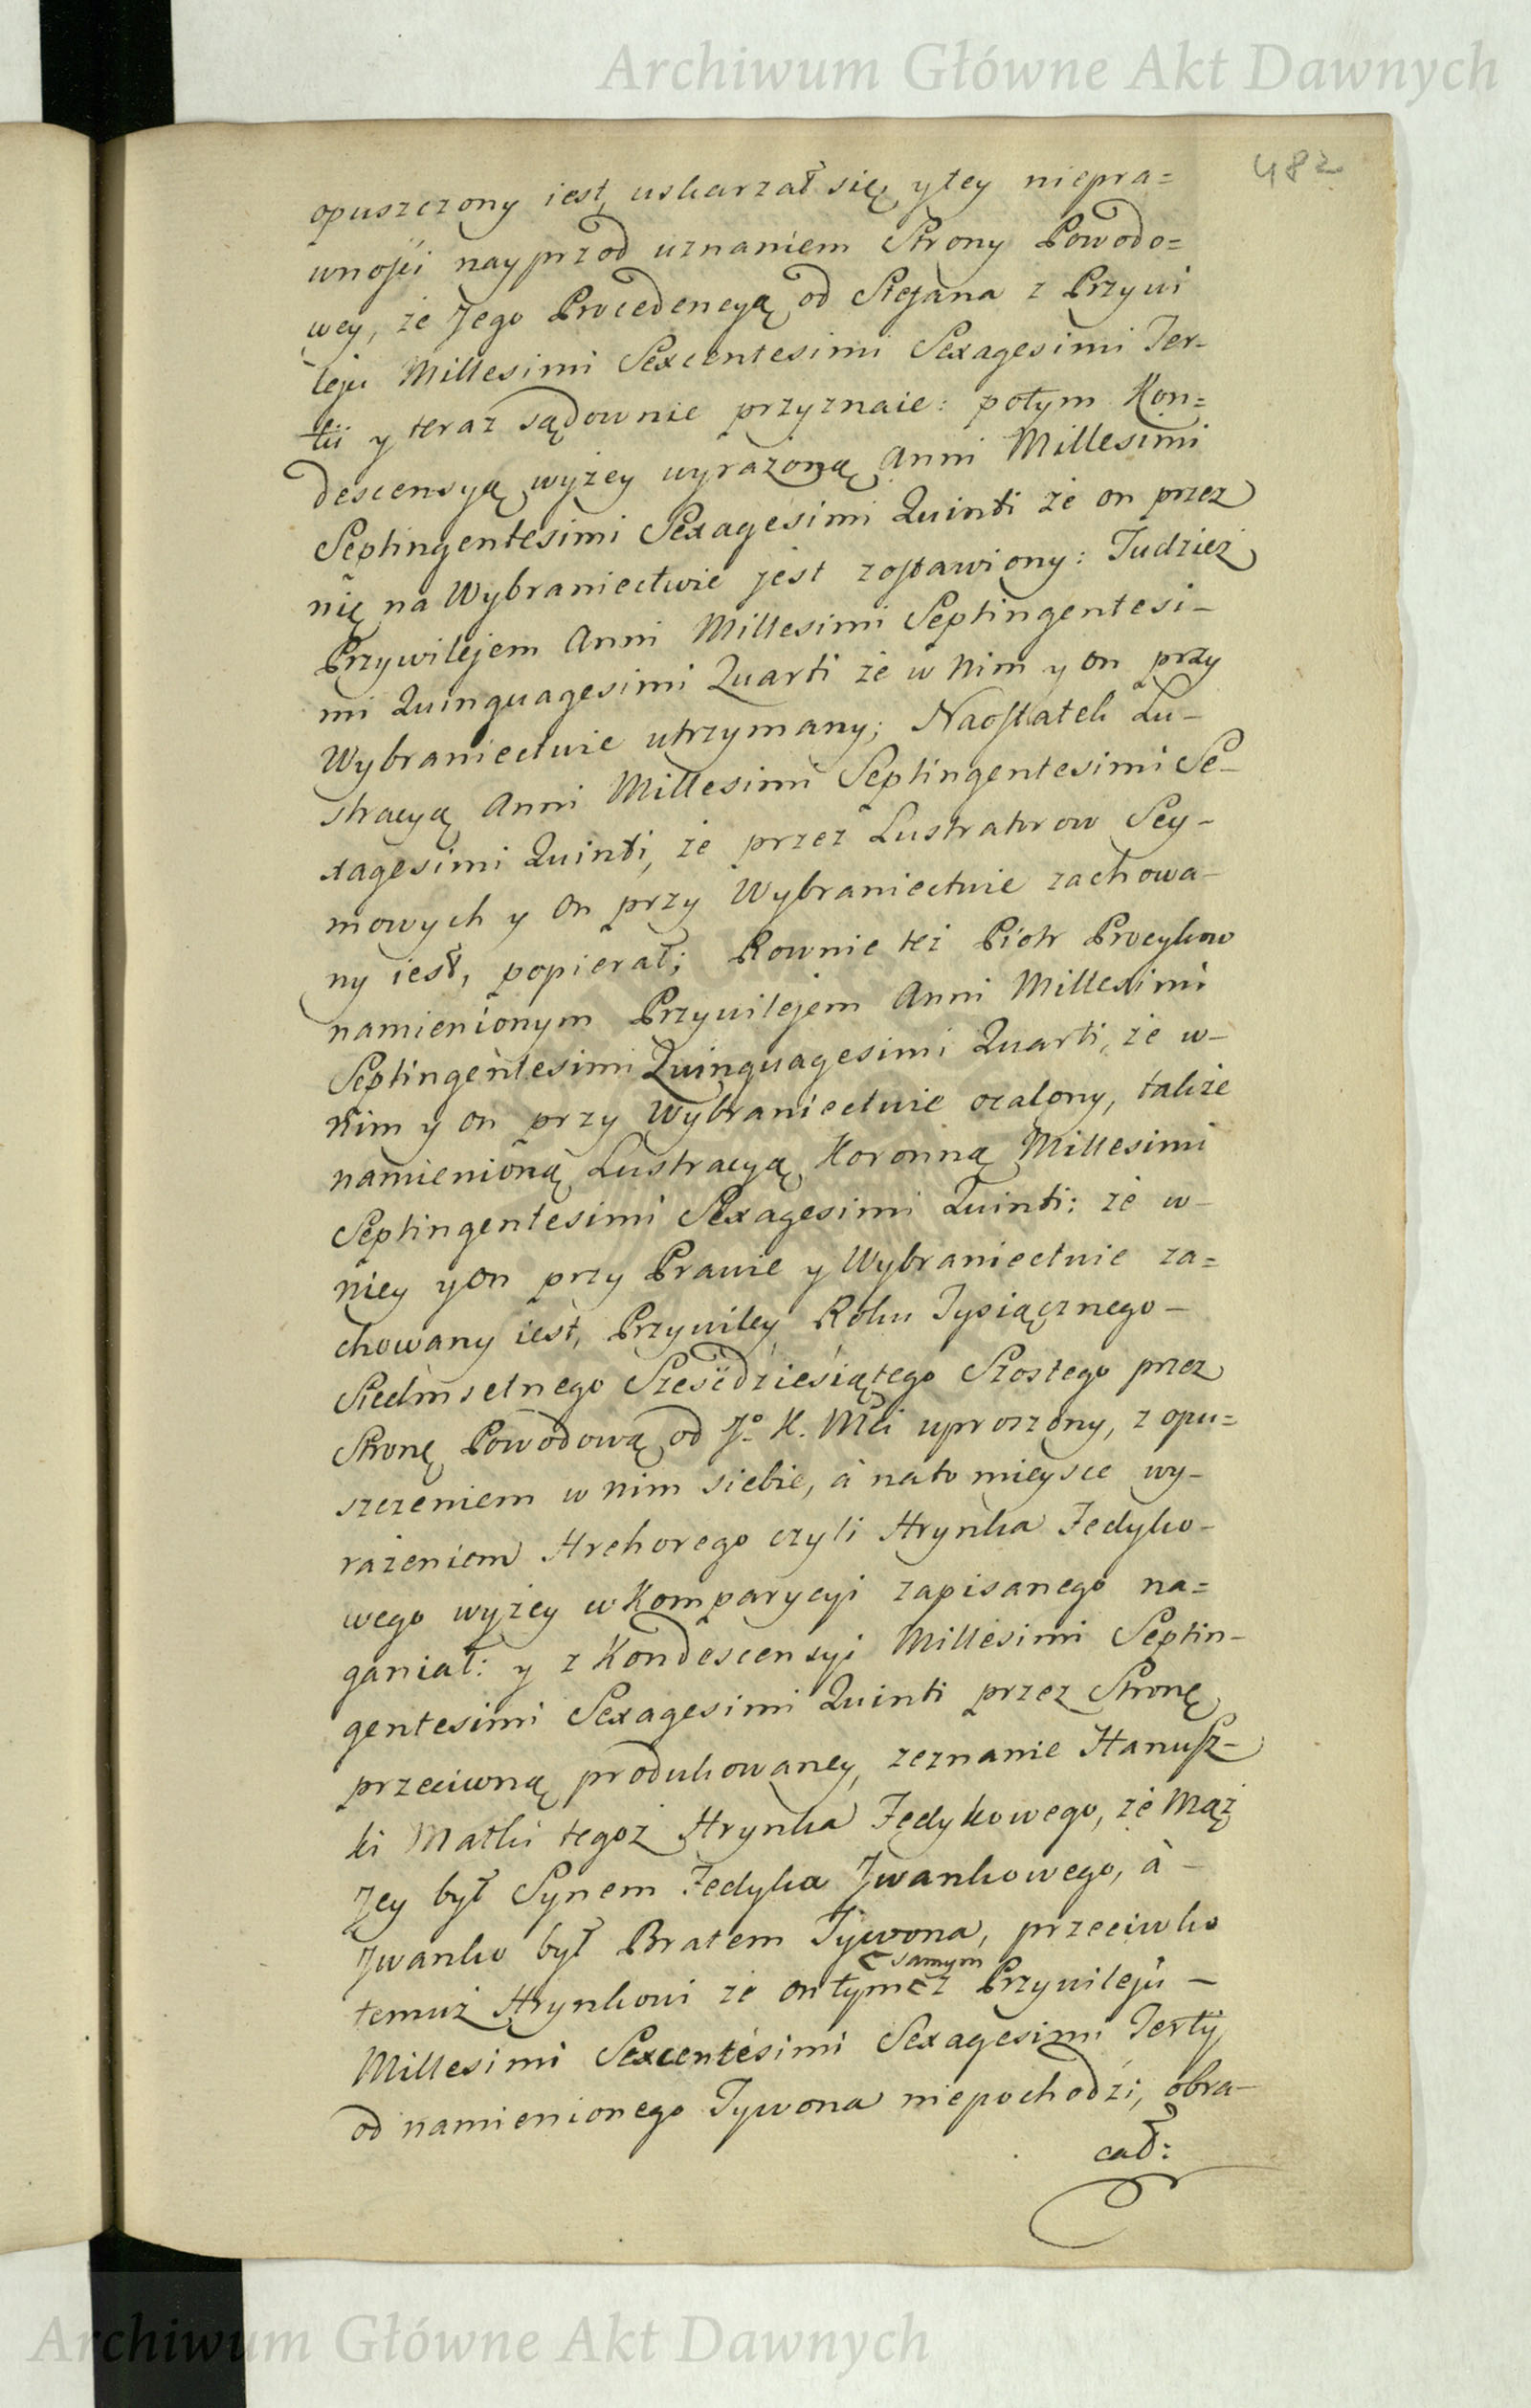 Archiwum Główne Akt Dawnych
482
opuszczony iest uskarzał się, y tey niepra=
wności nayprzod uznaniem Strony Powodo=
wey, że Jego Procedencyą od Stefana z Przywi
leju Millesimi Sexcentesimi Sexagesimi Ter-
tii y teraz sądownie przyznaie: potym Kon=
descensyą wyżey wyrażoną Anni Millesimi
Septingentesimi Sexagesimi Quinti że on przez
nię na Wybraniectwie jest zostawiony: Tudzież
Przywilejem Anni Millesimi Septingentesi-
mi Quinquagesimi Quarti że w Nim y on przy
Wybraniectwie utrzymany; Naostatek Lu-
stracyą Anni Millesimi Septingentesimi Se-
xagesimi Quinti, że przez Lustratorow Sey-
mowych y On przy Wybraniectwie zachowa-
ny iest, popierał; Rownie też Piotr Procykow
namienionym Przywilejem Anni Millesimi
Septingentesimi Quinquagesimi Quarti, że w-
Nim y on przy Wybraniectwie ocalony, także
namienioną Lustracyą Koronną Millesimi
Septingentesimi Sexagesimi Quinti: że w-
niey y On przy Prawie y Wybraniectwie za=
chowany iest, Przywiley Roku Tysiącznego-
Siedmsetnego Sześćdziesiątego Szostego przez
Stronę Powodową od Jo K. Mci uproszony, z opu=
szczeniem w nim siebie, à nato mieysce wy-
rażeniem Hrehorego czyli Hrynka Fedyko-
wego wyżey w Komparycyi zapisanego na=
ganiał: y z Kondescensyi Millesimi Septin-
gentesimi Sexagesimi Quinti przez Stronę
przeciwną produkowaney, zeznanie Hanusz-
ki Matki tegoż Hrynka Fedykowego, że Mąż
Jey był Synem Fedyka Jwankowego, à-
Jwanko był Bratem Tywona, przeciwko
samym
temuż Hrynkowi że on tym z Przywileju-
Millesimi Sexcentesimi Sexagesimi Tertij
od namienionego Tywona niepochodzi, obra-
cał:
Archiwum Główne Akt Dawnych